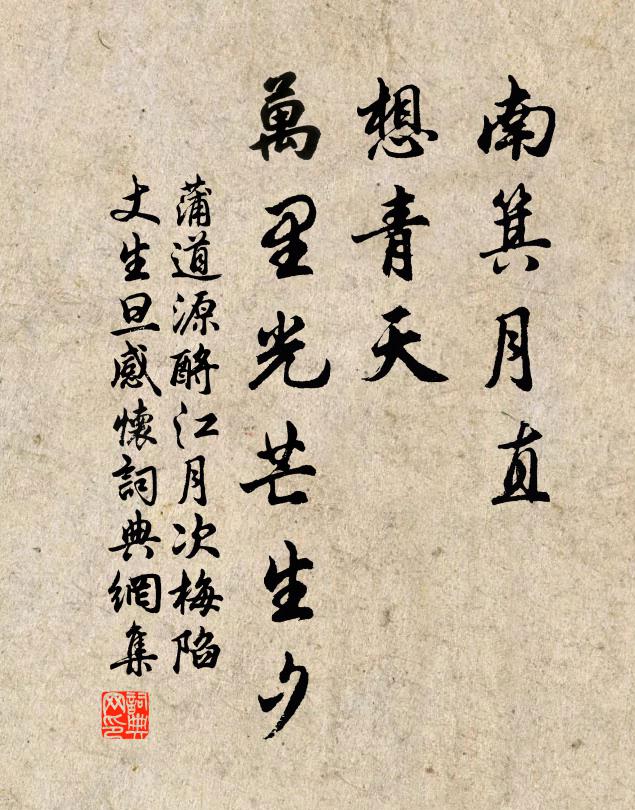 南箕月直
想青天
萬里光芒生夕
蒲道源酹江月次梅陷
丈生旦感懷詞典網集
詞典網印